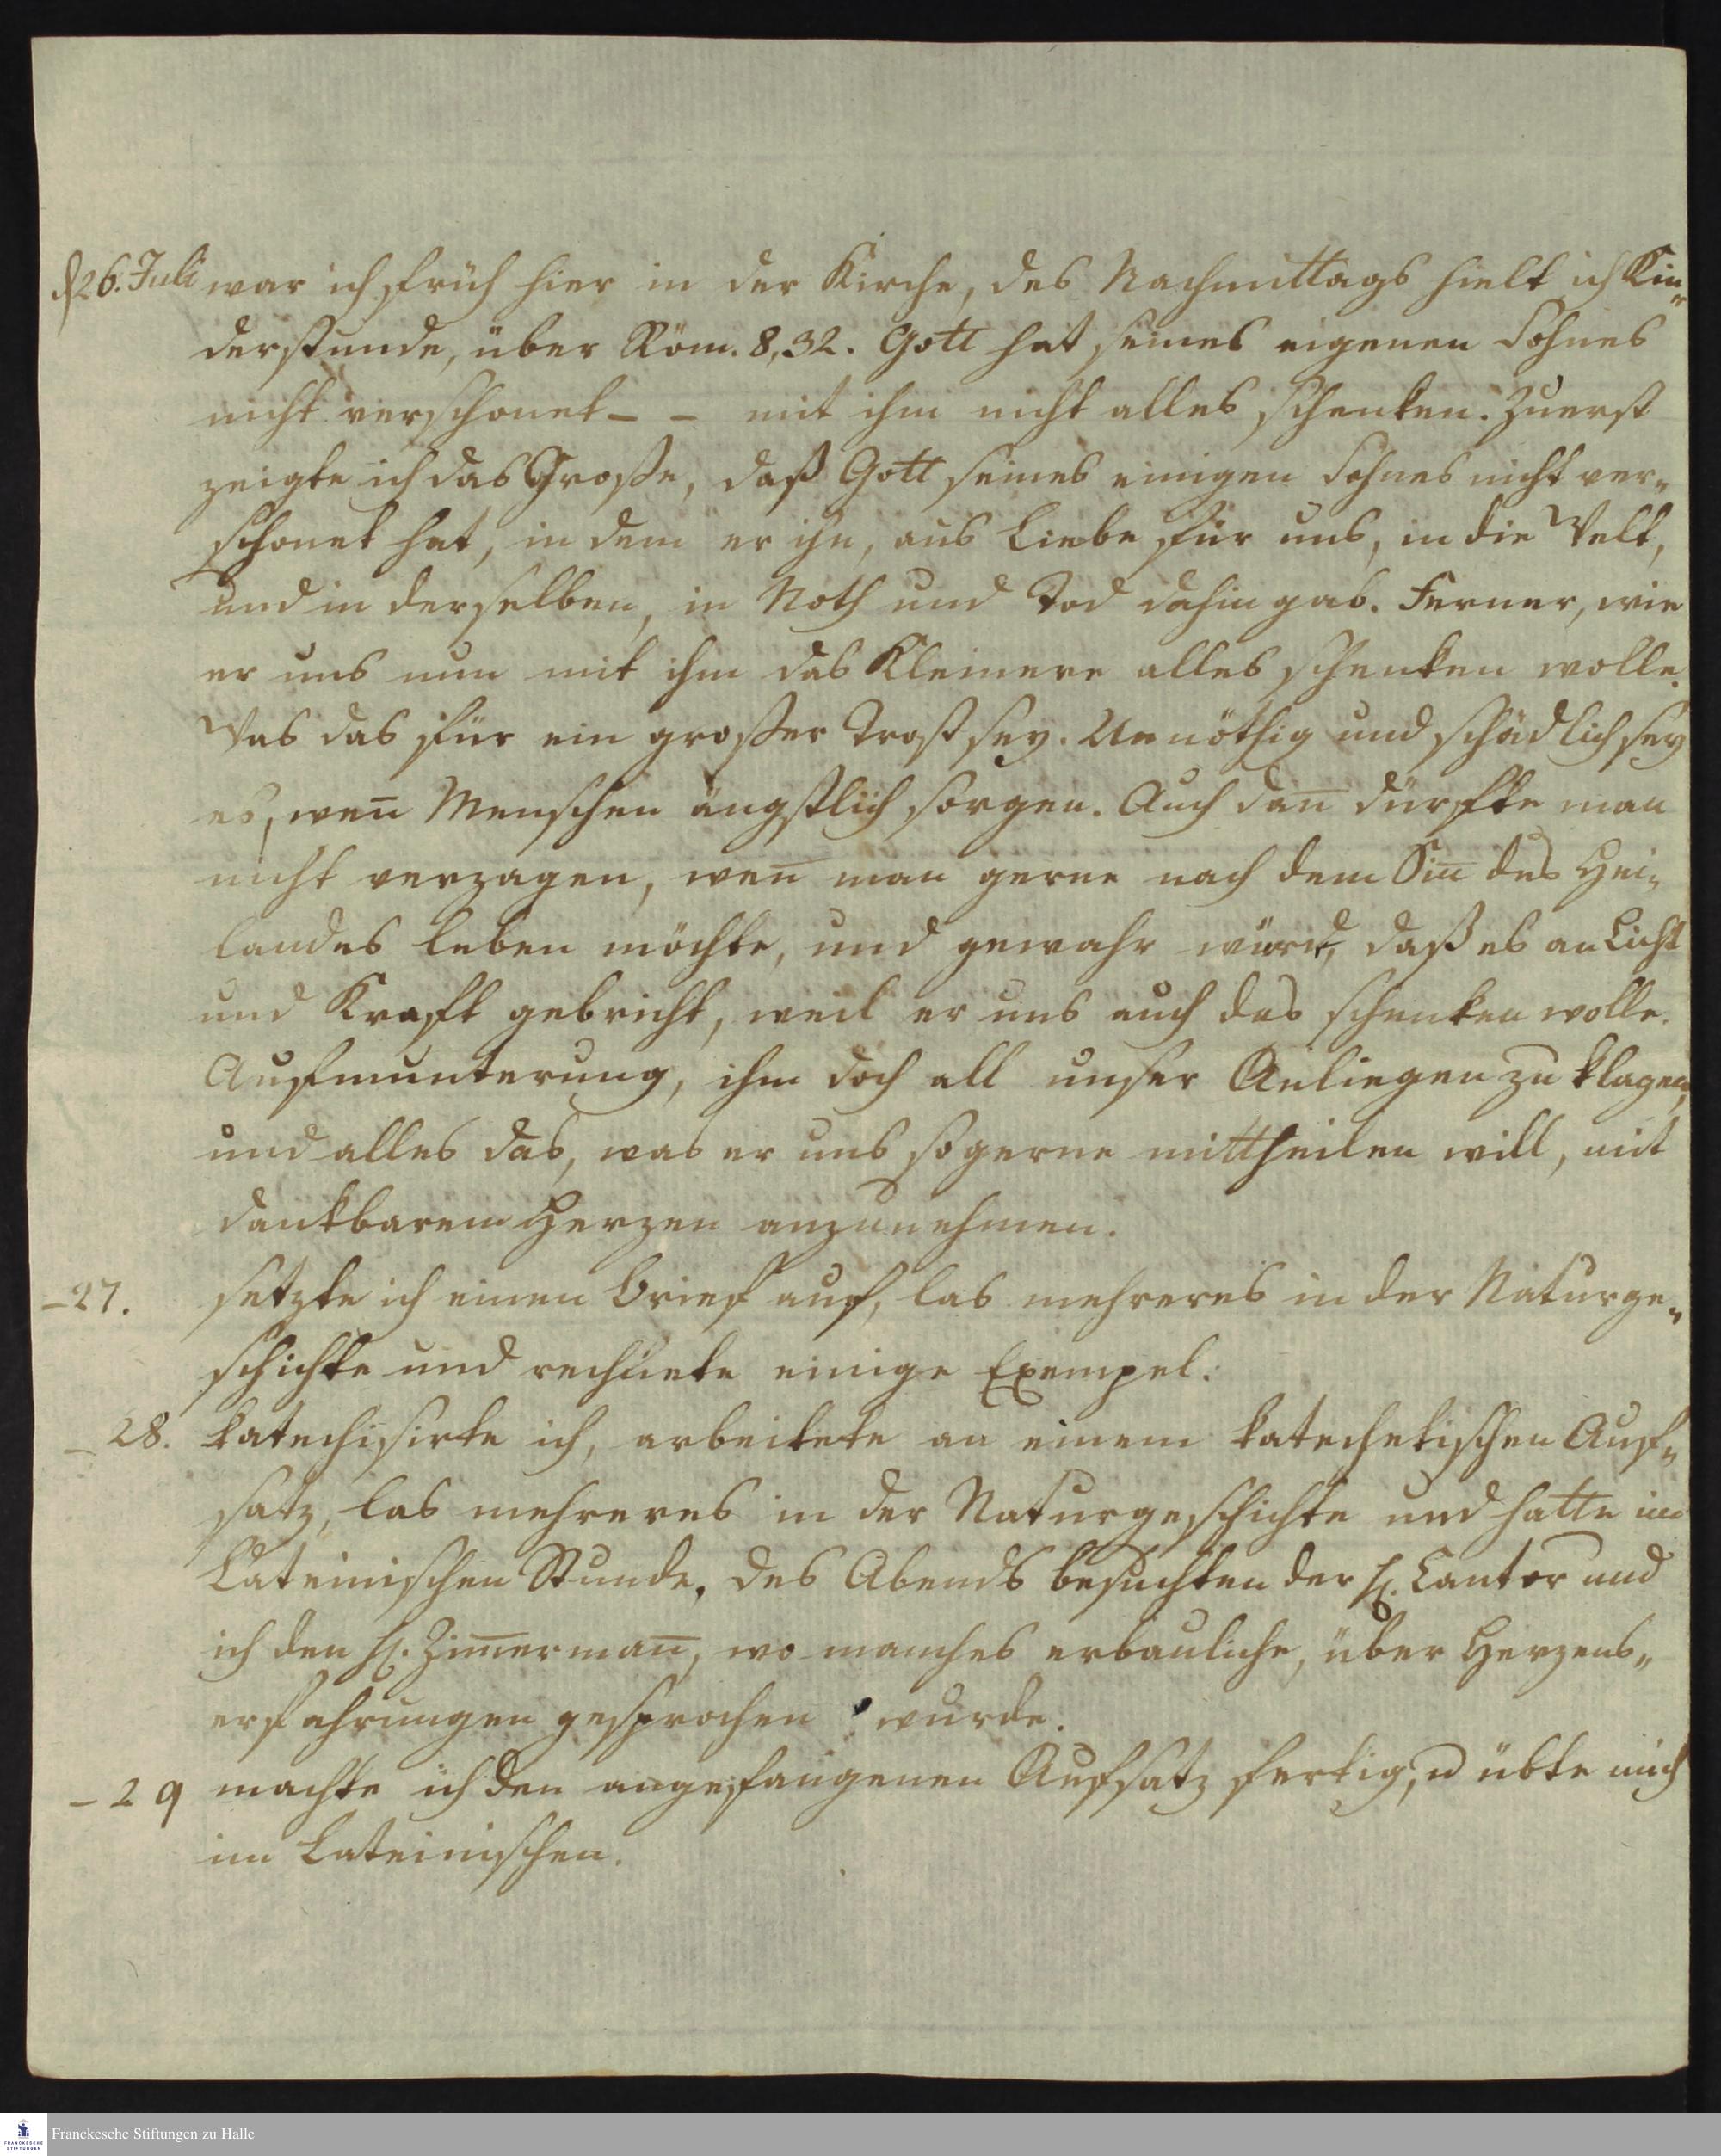 d 26. Juli war ich früh hier in der Kirche, des Nachmittags hielt ich Kin„
derstunde, über Röm. 8,32. Gott hat seines eigenen Sohnes
nicht verschonet – – mit ihm nicht alles schenken. Zuerst
zeigte ich das Große, daß Gott seines einigen Sohnes nicht ver„
schonet hat, in dem er ihn, aus Liebe für uns, in die Welt,
und in derselben, in Noth und Tod dahin gab. Ferner, wie
er uns nun mit ihm das Kleinere alles schenken wolle.
Was das für ein großer Trost sey. Unnöthig und schädlich sey
es, wen̅ Menschen ängstlich sorgen. Auch dan̅ dürfte man
nicht verzagen, wen̅ man gerne nach dem Sin̅ des Hei„
landes leben möchte, und gewahr würd, daß es an Licht
und Kraft gebricht, weil er uns auch das schenken wolle.
Aufmunterung, ihm doch all unser Anliegen zu klagen,
und alles das, was er uns so gerne mittheilen will, mit
dankbarem Herzen anzunehmen.
– 27. setzte ich einen Brief auf, las mehreres in der Naturge„
schichte und rechnete einige Exempel.
– 28. katechisirte ich, arbeitete an einem katechetischen Auf„
satz, las mehreres in der Naturgeschichte und hatte im
Lateinischen Stunde. Des Abends besuchten der H. Cantor und
ich den H. Zim̅erman̅, wo manches erbauliche, über Herzens„
erfahrungen gesprochen wurde.
– 29 machte ich den angefangenen Aufsatz fertig, u übte mich
im Lateinischen.
FRANCKESCHE STIFTUNGEN
Franckesche Stiftungen zu Halle